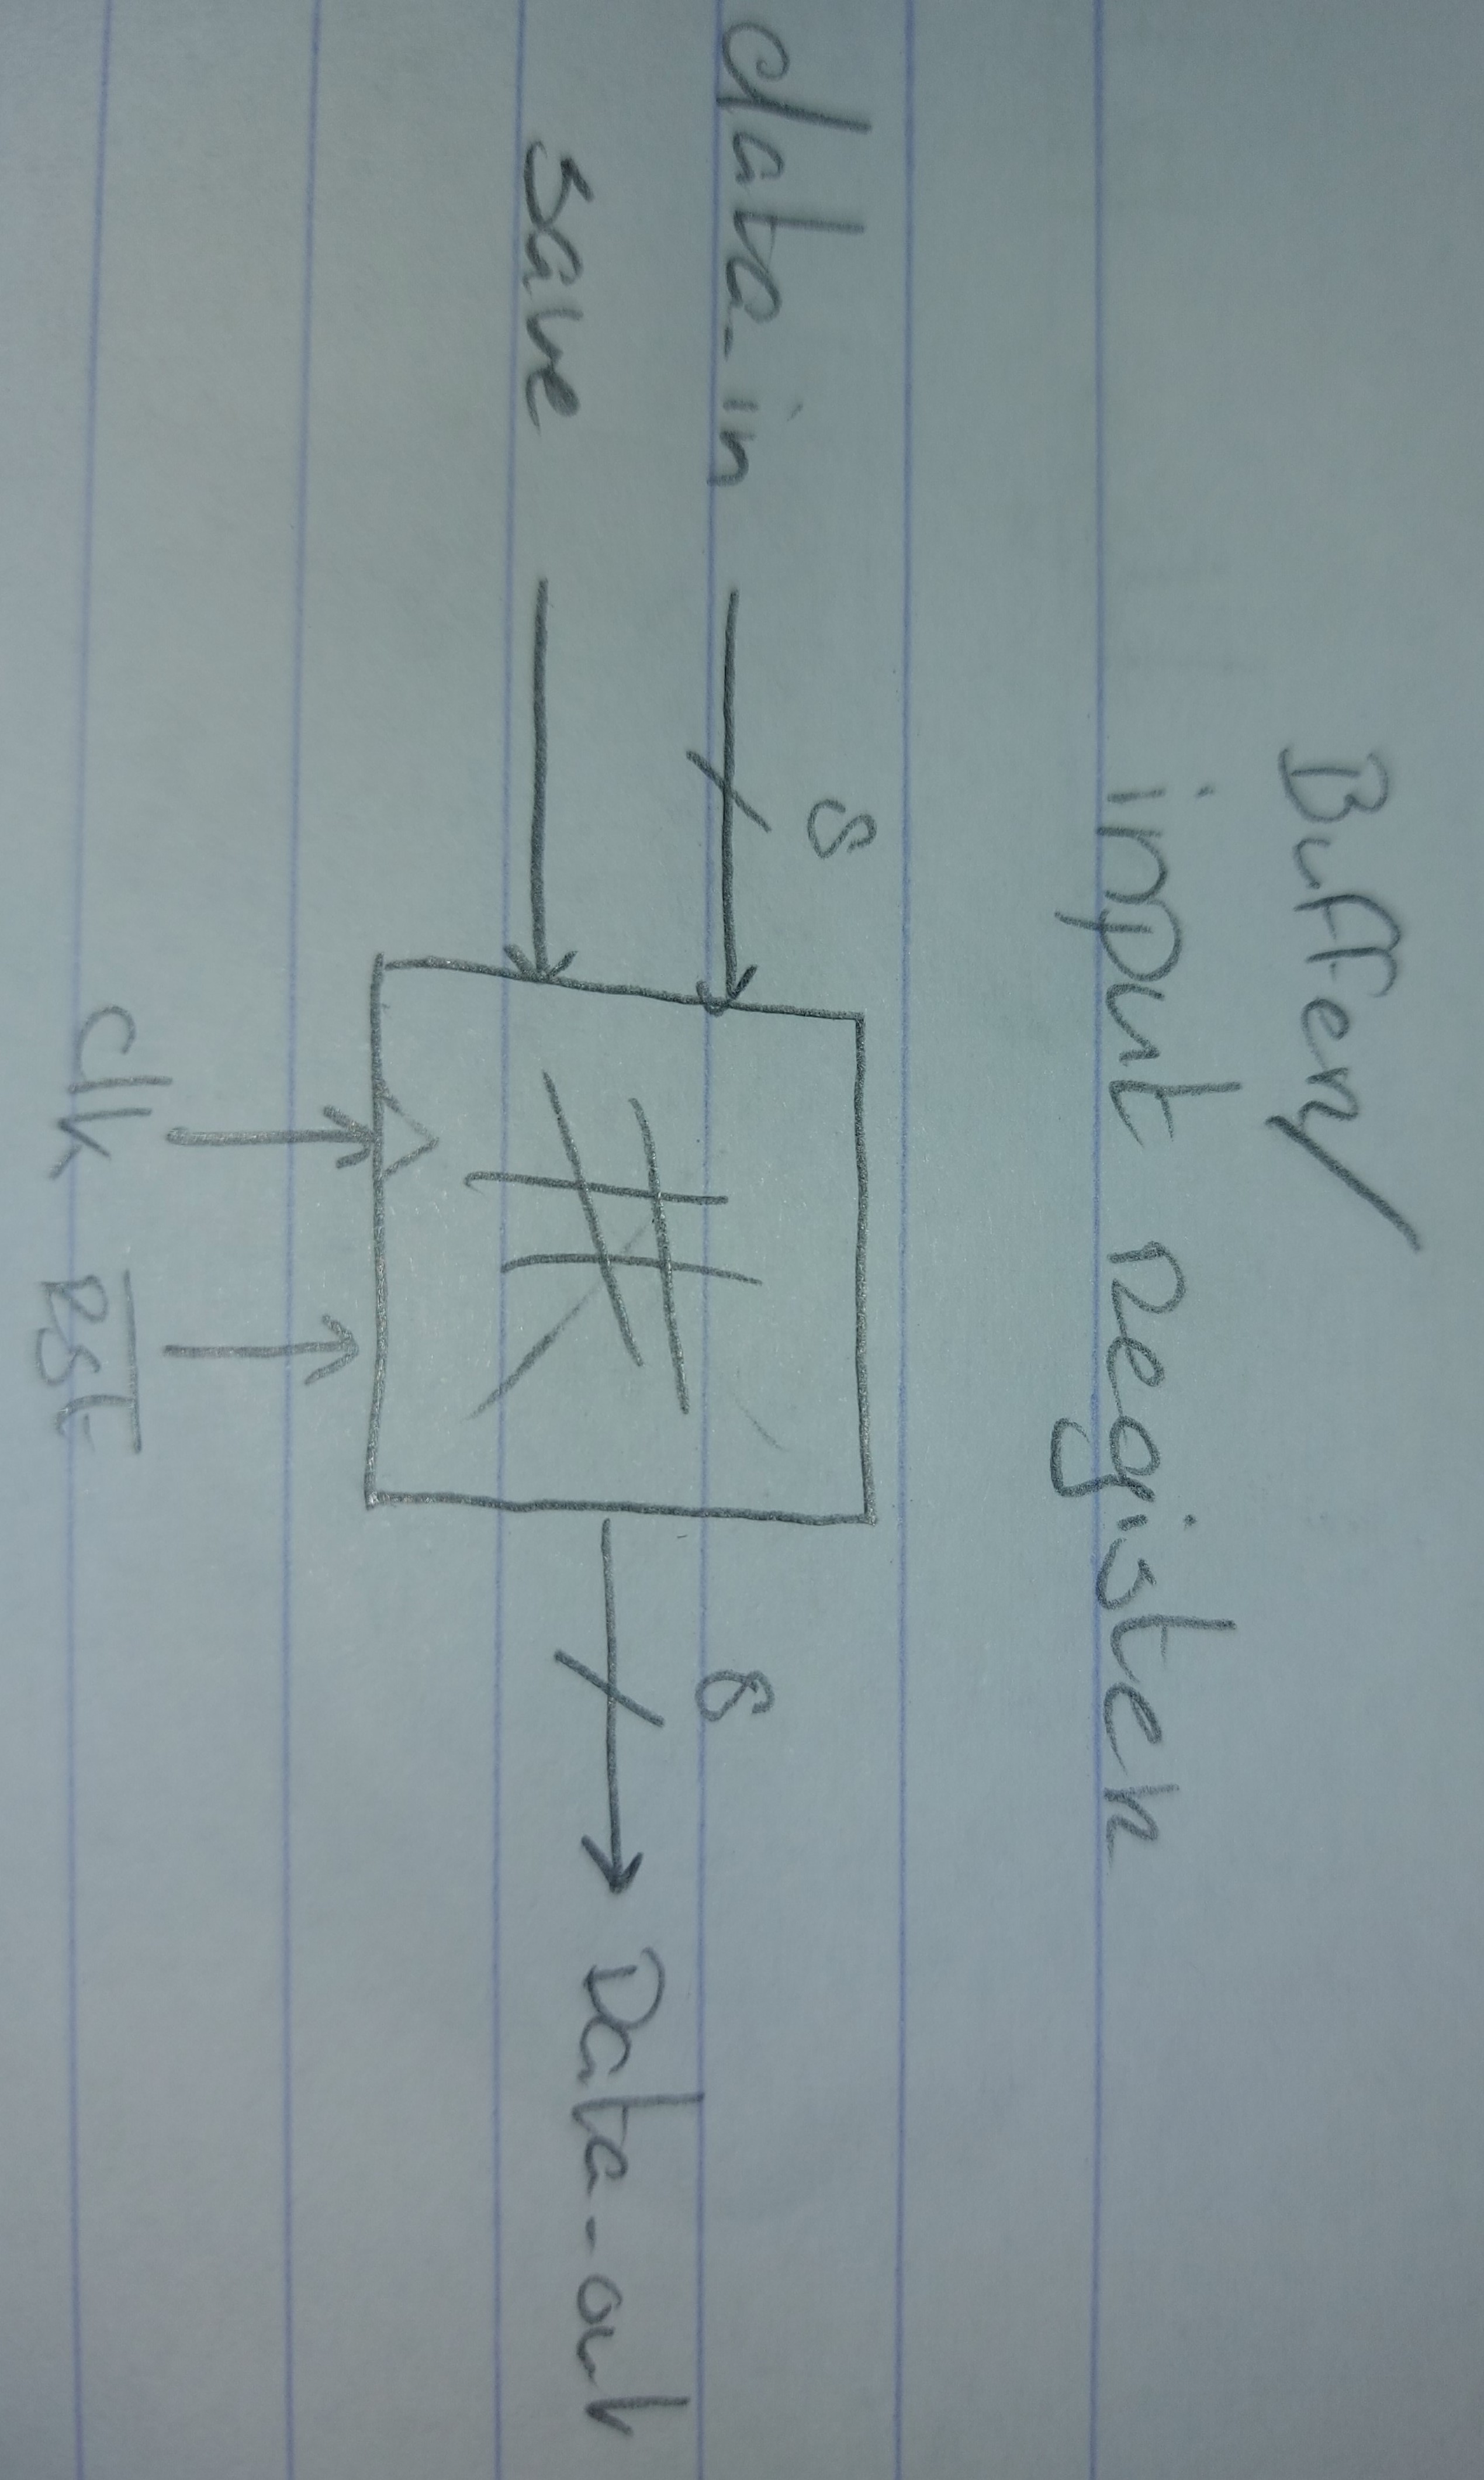 Buffer/
input Register
8
data_in
8
save
Data_out
clk
RSt